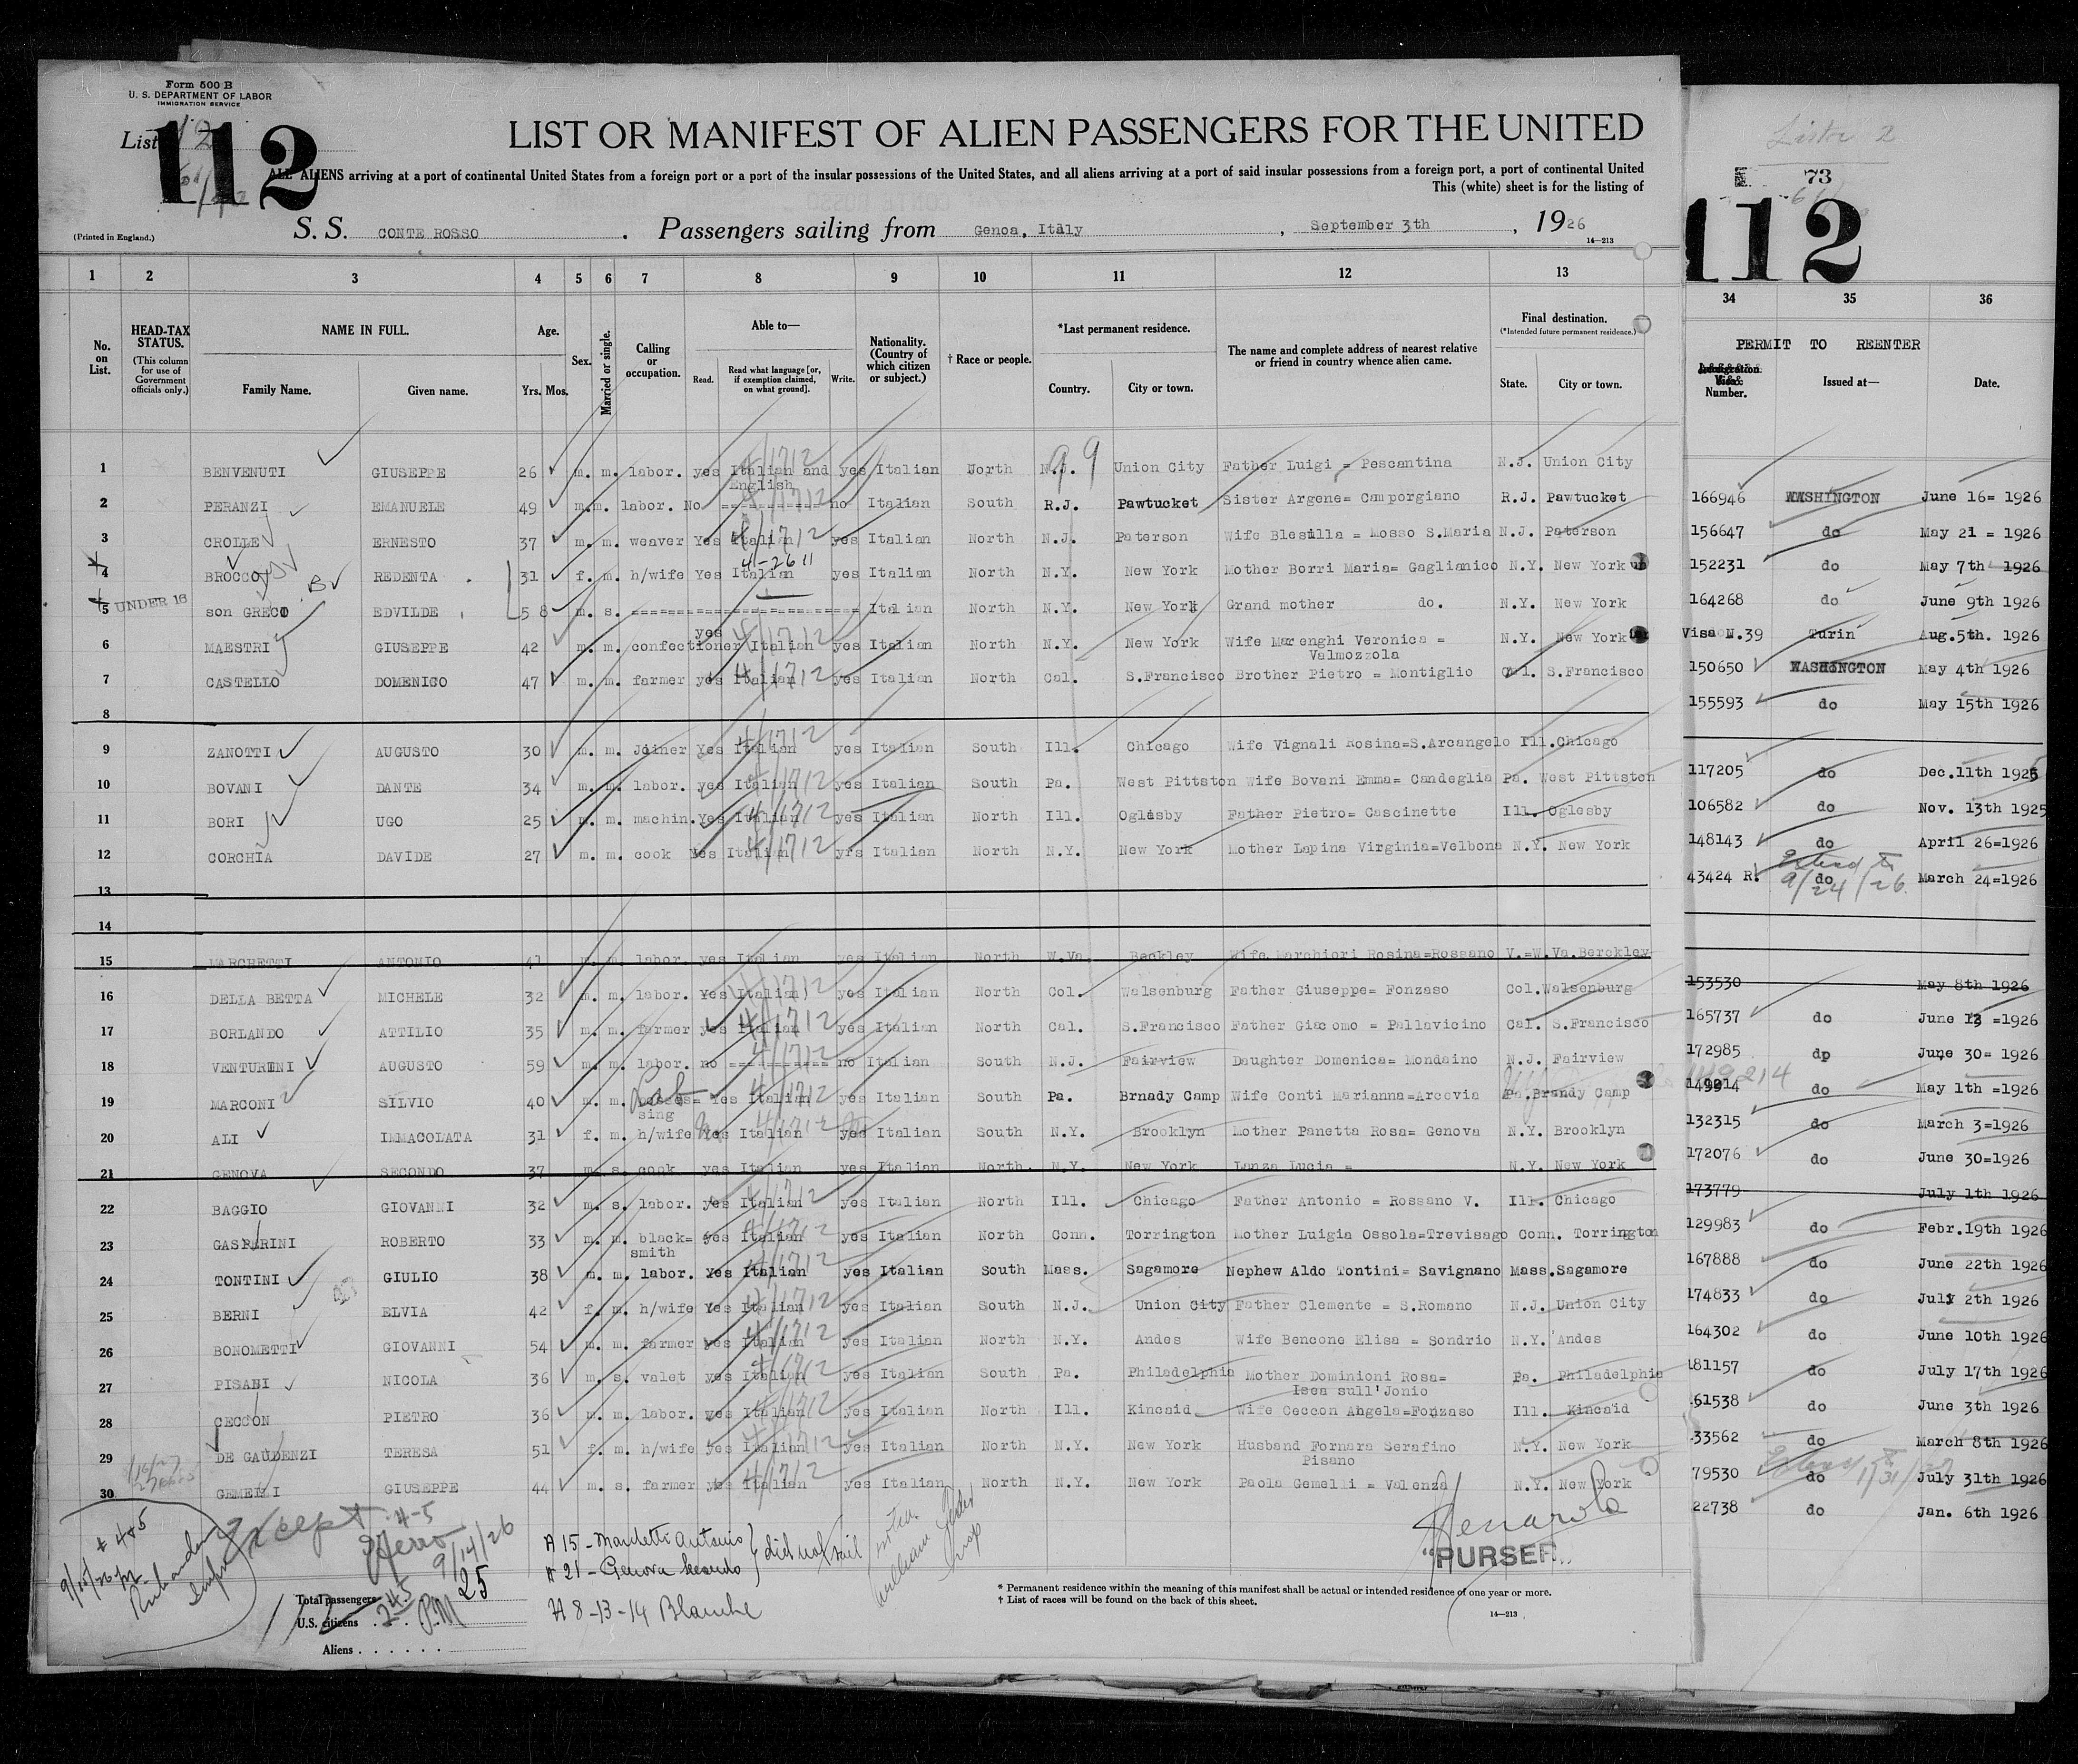 Form 500 B
U. S. DEPARTMENT OF LABOR
IMMIGRATION SERVICE
List 12
112
LIST OR MANIFEST OF ALIEN PASSENGERS FOR THE UNITED
ALL ALIENS arriving at a port of continental United States from a foreign port or a port of the insular possessions of the United States, and all aliens arriving at a port of said insular possessions from a foreign port, a port of continental United
This (white) sheet is for the listing of
(Printed in England.)
S. S. CONTE ROSSO . Passengers sailing from Genoa, Italy , September 3th , 1926
14—213
1 2 3 4 5 6 7 8 9 10 11 12 13
No. on List.
HEAD-TAX STATUS.
(This column for use of Government officials only.)
NAME IN FULL.
Family Name. Given name.
Age.
Yrs. Mos.
Sex.
Married or single.
Calling or occupation.
Able to—
Read. Read what language [or, if exemption claimed, on what ground]. Write.
Nationality. (Country of which citizen or subject.)
† Race or people.
*Last permanent residence.
Country. City or town.
The name and complete address of nearest relative or friend in country whence alien came.
Final destination.
(*Intended future permanent residence.)
State. City or town.
1 BENVENUTI GIUSEPPE 26 m. m. labor. yes Italian and English yes Italian North N.J. Union City Father Luigi = Pescantina N.J. Union City
2 PERANZI EMANUELE 49 m.m. labor. No =========== no Italian South R.J. Pawtucket Sister Argene= Camporgiano R.J. Pawtucket
3 CROLLE ERNESTO 37 m. m. weaver Yes Italian yes Italian North N.J. Paterson Wife Blesilla = Mosso S.Maria N.J. Paterson
4 BROCCO REDENTA 31 f. m. h/wife Yes Italian yes Italian North N.Y. New York Mother Borri Maria= Gaglianico N.Y. New York
UNDER 16
5 son GRECO EDVILDE 5 8 m. s. ======================= Italian North N.Y. New York Grand mother do. N.Y. New York
6 MAESTRI GIUSEPPE 42 m. m. confectioner yes Italian yes Italian North N.Y. New York Wife Marenghi Veronica = Valmozzola N.Y. New York
7 CASTELLO DOMENICO 47 m. m. farmer yes Italian yes Italian North Cal. S.Francisco Brother Pietro = Montiglio Cal. S.Francisco
8
9 ZANOTTI AUGUSTO 30 m. m. Joiner Yes Italian yes Italian South Ill. Chicago Wife Vignali Rosina=S.Arcangelo Ill.Chicago
10 BOVANI DANTE 34 m. m. labor. yes Italian yes Italian South Pa. West Pittston Wife Bovani Emma= Candeglia Pa. West Pittston
11 BORI UGO 25 m. m. machin. Yes Italian yes Italian North Ill. Oglesby Father Pietro= Cascinette Ill. Oglesby
12 CORCHIA DAVIDE 27 m. m. cook Yes Italian yrs Italian North N.Y. New York Mother Lapina Virginia=Velbona N.Y. New York
13
14
15 MARCHETTI ANTONIO 41 m. m. labor. yes Italian yes Italian North W.Va. Beckley Wife Marchiori Rosina=Rossano V.=W.Va.Berckley
16 DELLA BETTA MICHELE 32 m. m. labor. Yes Italian yes Italian North Col. Walsenburg Father Giuseppe= Fonzaso Col.Walsenburg
17 BORLANDO ATTILIO 35 m. m. farmer yes Italian yes Italian North Cal. S.Francisco Father Giacomo = Pallavicino Cal. S.Francisco
18 VENTURINI AUGUSTO 59 m. m. labor. no =========== no Italian South N.J. Fairview Daughter Domenica= Mondaino N.J. Fairview
19 MARCONI SILVIO 40 m. m. Lab Yes Italian yes Italian South Pa. Brnady Camp Wife Conti Marianna=Arcevia Pa.Brandy Camp
20 ALI IMMACOLATA 31 f. m. h/wife Yes Italian yes Italian South N.Y. Brooklyn Mother Panetta Rosa= Genova N.Y. Brooklyn
21 GENOVA SECONDO 37 m. s. cook yes Italian yes Italian North. N.Y. New York Lanza Lucia = N.Y. New York
22 BAGGIO GIOVANNI 32 m. s. labor. yes Italian yes Italian North Ill. Chicago Father Antonio = Rossano V. Ill. Chicago
23 GASPARINI ROBERTO 33 m. m. black=smith yes Italian yes Italian North Conn. Torrington Mother Luigia Ossola=Trevisago Conn. Torrington
24 TONTINI GIULIO 38 m. m. labor. Yes Italian yes Italian South Mass. Sagamore Nephew Aldo Tontini= Savignano Mass.Sagamore
25 BERNI ELVIA 42 f. m. h/wife Yes Italian yes Italian South N.J. Union City Father Clemente = S.Romano N.J. Union City
26 BONOMETTI GIOVANNI 54 m. m. farmer yes Italian yes Italian North N.Y. Andes Wife Bencone Elisa = Sondrio N.Y. Andes
27 PISANI NICOLA 36 m. s. valet yes Italian yes Italian South Pa. Philadelphia Mother Dominioni Rosa= Isca sull'Jonio Pa. Philadelphia
28 CECCON PIETRO 36 m. m. labor. yes Italian yes Italian North Ill. Kincaid Wife Ceccon Angela=Fonzaso Ill. Kincaid
29 DE GAUDENZI TERESA 51 f. m. h/wife yes Italian yes Italian North N.Y. New York Husband Fornara Serafino Pisano N.Y. New York
30 GEMELLI GIUSEPPE 44 m. s. farmer yes Italian yes Italian North N.Y. New York Paola Gemelli = Valenza N.Y. New York
except 4-5
9/14/26
# 4&5
# 15 - Marchetti Antonio
# 21 - Genova Secondo } did not sail
# 8-13-14 Blanche
"PURSER"
Total passengers 25
U.S. citizens
Aliens
112
* Permanent residence within the meaning of this manifest shall be actual or intended residence of one year or more.
† List of races will be found on the back of this sheet.
14—213
Lista 2
73
112
34 35 36
PERMIT TO REENTER
Number. Issued at— Date.
166946 WASHINGTON June 16= 1926
156647 do May 21 = 1926
152231 do May 7th 1926
164268 do June 9th 1926
Visa N.39 Turin Aug.5th. 1926
150650 WASHINGTON May 4th 1926
155593 do May 15th 1926
117205 do Dec.11th 1925
106582 do Nov. 13th 1925
148143 do April 26=1926
43424 R. do March 24=1926
9/24/26
153530 May 8th 1926
165737 do June 12 =1926
172985 dp June 30= 1926
149214 do May 1th =1926
132315 do March 3=1926
172076 do June 30=1926
173779 July 1th 1926
129983 do Febr.19th 1926
167888 do June 22th 1926
174833 do July 2th 1926
164302 do June 10th 1926
181157 do July 17th 1926
61538 do June 3th 1926
33562 do March 8th 1926
79530 do July 31th 1926
22738 do Jan. 6th 1926